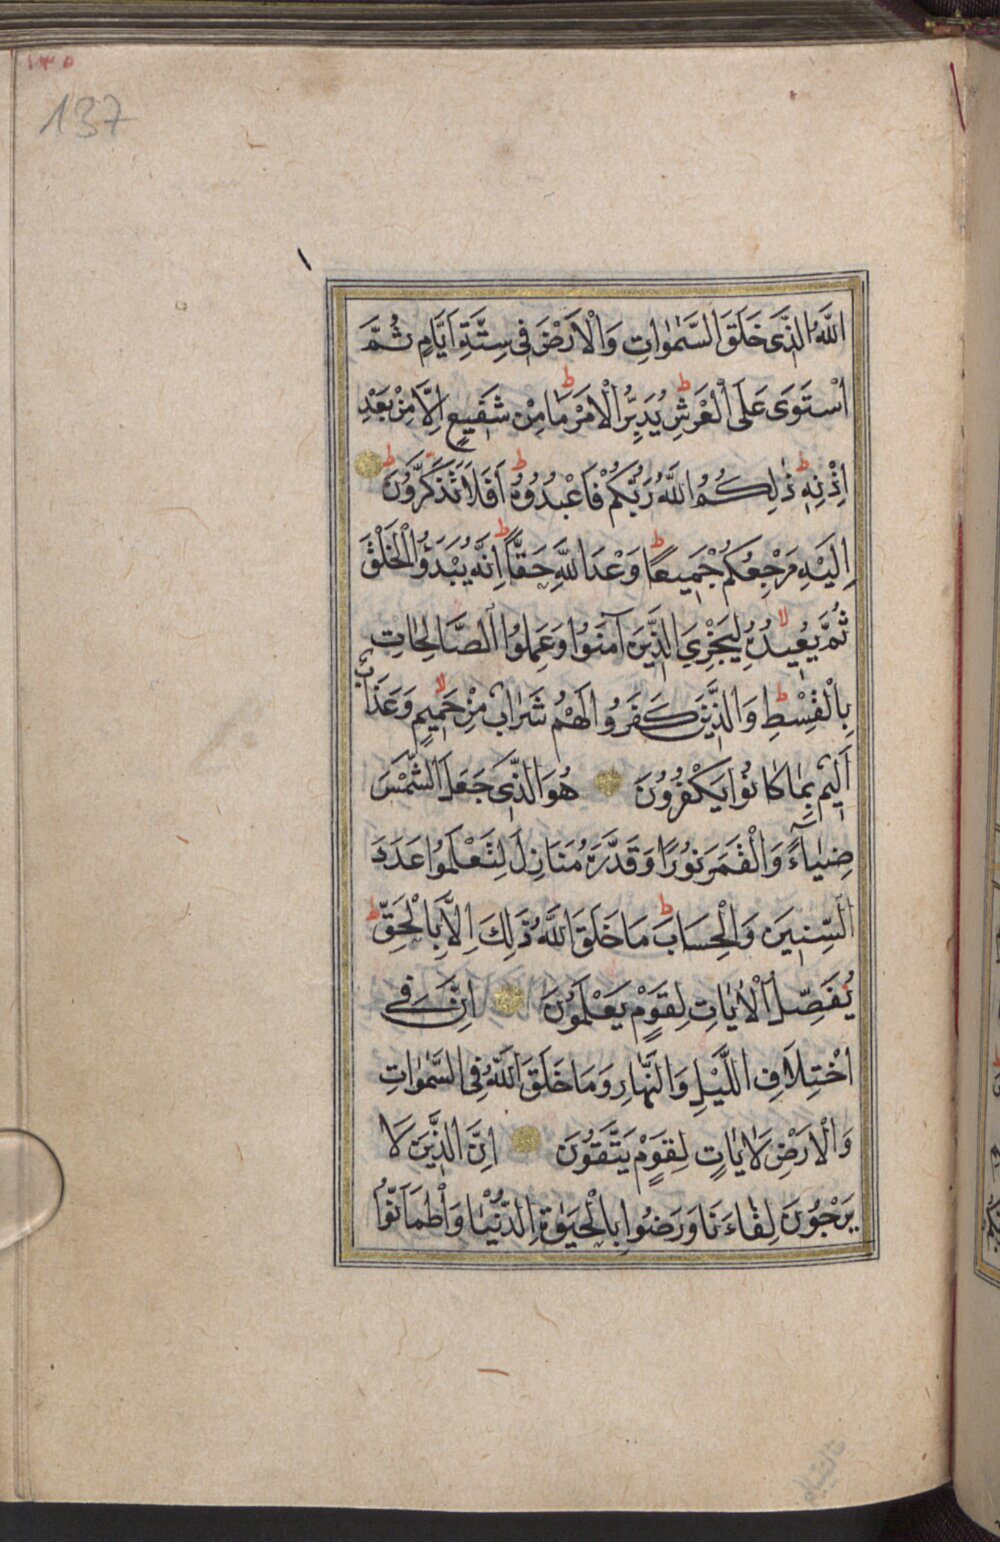 ١٣٥
137
اللَّهُ الَّذِى خَلَقَ السَّمٰوَاتِ وَالْاَرْضَ فِى سِتَّةِ اَيَّامٍ ثُمَّ
اسْتَوٰى عَلَى الْعَرْشِ ط يُدَبِّرُ الْاَمْرَ ط مَا مِنْ شَفِيعٍ اِلَّا مِنْ بَعْدِ
اِذْنِهٖ ط ذٰلِكُمُ اللَّهُ رَبُّكُمْ فَاعْبُدُوهُ ط اَفَلَا تَذَكَّرُونَ ط
اِلَيْهِ مَرْجِعُكُمْ جَمِيعًا ط وَعْدَ اللَّهِ حَقًّا ط اِنَّهُ يَبْدَؤُا الْخَلْقَ
ثُمَّ يُعِيدُهُ لا لِيَجْزِىَ الَّذِينَ آمَنُوا وَعَمِلُوا الصَّالِحَاتِ
بِالْقِسْطِ ط وَالَّذِينَ كَفَرُوا لَهُمْ شَرَابٌ مِنْ حَمِيمٍ لا وَعَذَابٌ
اَلِيمٌ بِمَا كَانُوا يَكْفُرُونَ هُوَ الَّذِى جَعَلَ الشَّمْسَ
ضِيَاءً وَالْقَمَرَ نُورًا وَقَدَّرَهُ مَنَازِلَ لِتَعْلَمُوا عَدَدَ
السِّنِينَ وَالْحِسَابَ ط مَا خَلَقَ اللَّهُ ذٰلِكَ اِلَّا بِالْحَقِّ ط
يُفَصِّلُ الْاٰيَاتِ لِقَوْمٍ يَعْلَمُونَ اِنَّ فِى
اخْتِلَافِ اللَّيْلِ وَالنَّهَارِ وَمَا خَلَقَ اللَّهُ فِى السَّمٰوَاتِ
وَالْاَرْضِ لَاٰيَاتٍ لِقَوْمٍ يَتَّقُونَ اِنَّ الَّذِينَ لَا
يَرْجُونَ لِقَاءَنَا وَرَضُوا بِالْحَيٰوةِ الدُّنْيَا وَاطْمَاَنُّوا